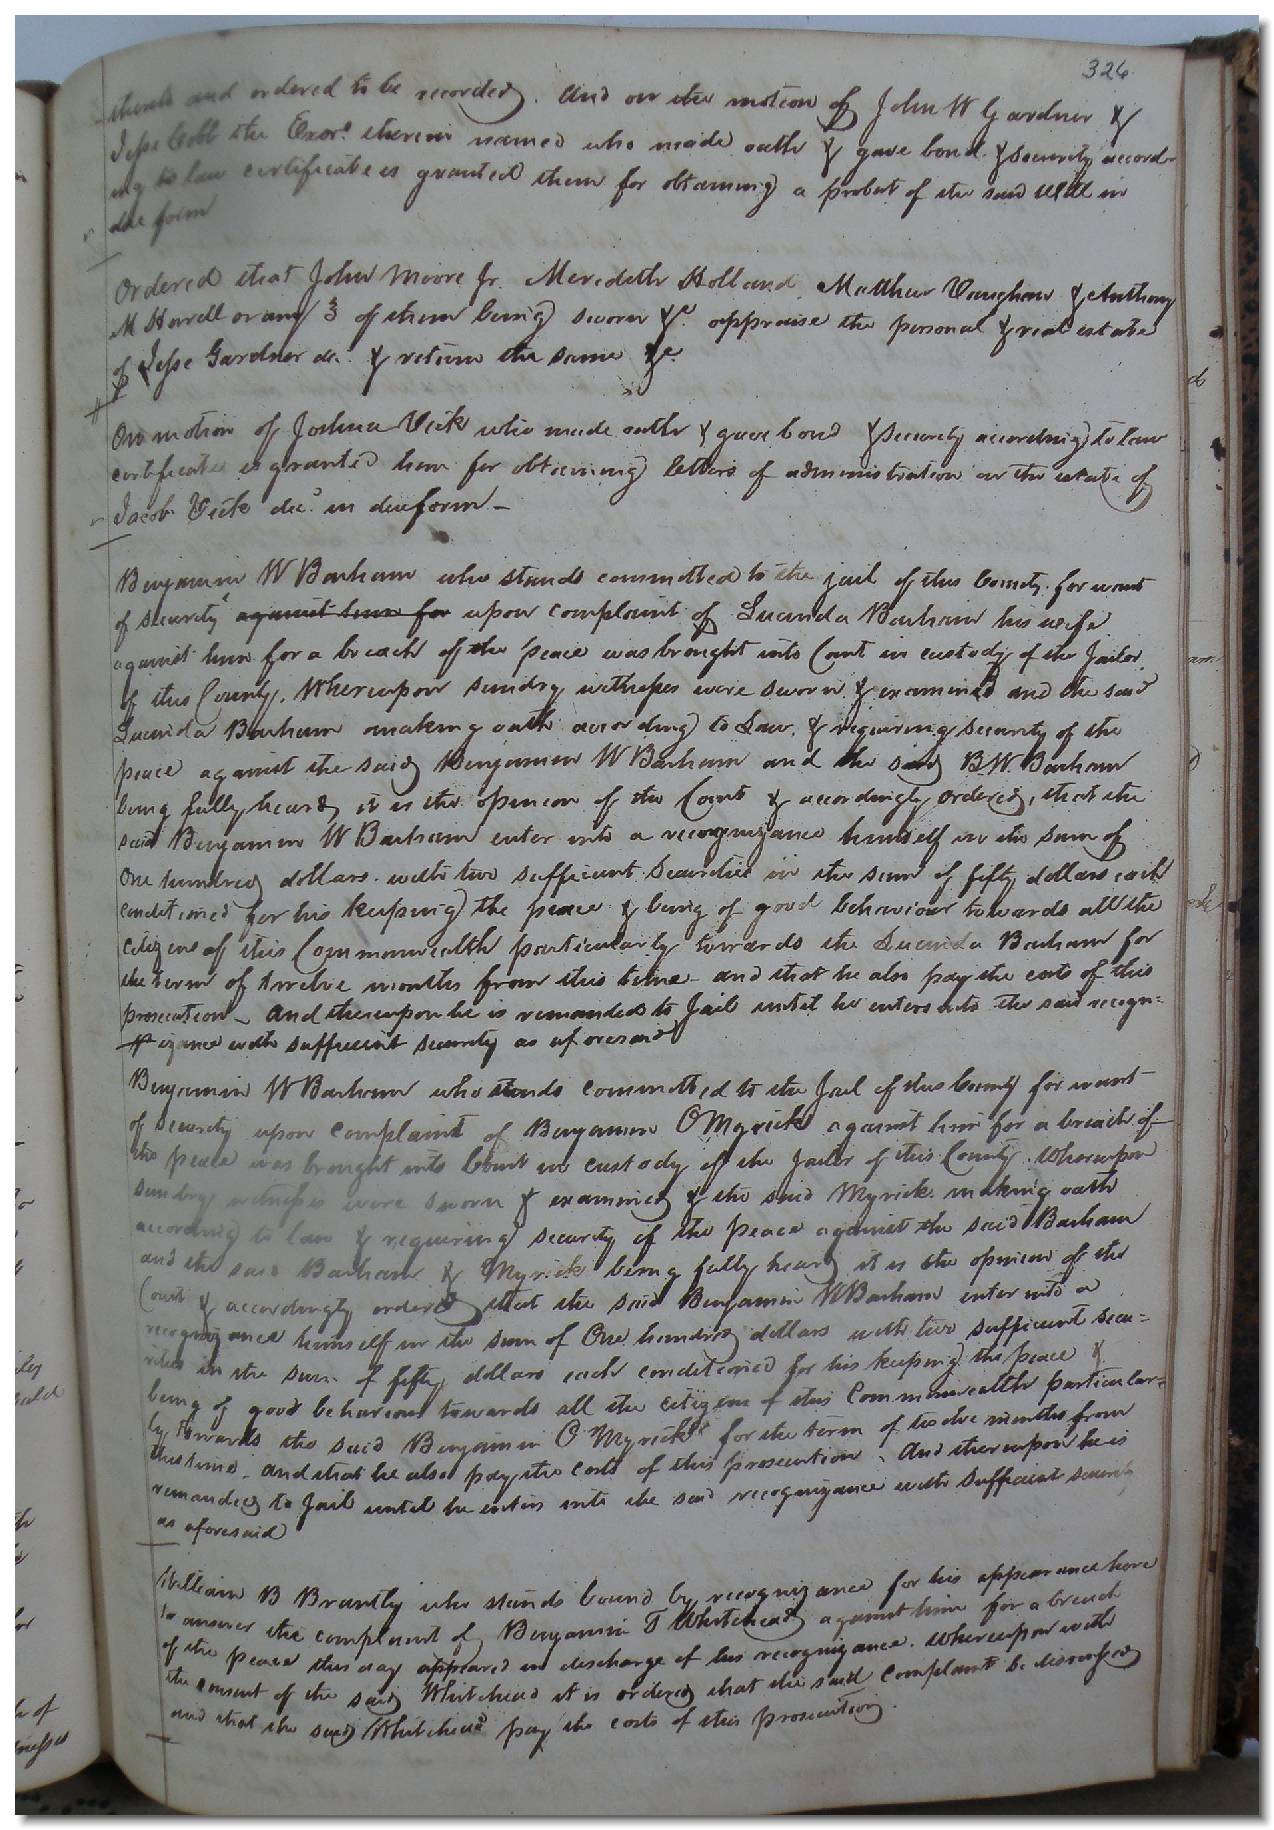 326
thereto and ordered to be recorded. And on the motion of John W Gardner &
Jesse Cobb the Exors. therein named who made oath & gave bond & security accord-
ing to law certificate is granted them for obtaining a probat of the said Will in
due form
Ordered that John Moore Jr. Meredith Holland Matthew Vaughan & Anthony
M Howell or any 3 of them being sworn &c. appraise the personal & real estate
of Jesse Gardner de. & return the same &c
On motion of Joshua Vick who made oath & gave bond & security according to law
certificate is granted him for obtaining letters of administration on the estate of
Jacob Vick dec. in due form –
Benjamin W Barham who stands committed to the jail of this County for want
of security against him for upon complaint of Lucinda Barham his wife
against him for a breach of the peace was brought into Court in custody of the Jailor
of this County. Whereupon sundry witnesses were sworn & examined and the said
Lucinda Barham making oath according to Law. & requiring security of the
peace against the said Benjamin W Barham and the said B.W. Barham
being fully heard, it is the opinion of the Court & accordingly ordered, that the
said Benjamin W Barham enter into a recognizance himself in the sum of
One hundred dollars with two sufficient securities in the sum of fifty dollars each
conditioned for his keeping the peace & being of good behaviour towards all the
citizens of this Commonwealth particularly towards the Lucinda Barham for
the term of twelve months from this time and that he also pay the costs of this
prosecution – And thereupon he is remanded to Jail until he enters into the said recogn=
izance with sufficient security as aforesaid
Benjamin W Barham who stands committed to the Jail of this County for want
of security upon complaint of Benjamin O Myrick against him for a breach of
the peace was brought into Court in custody of the Jailor of this County. Whereupon
sundry witnesses were sworn & examined & the said Myrick making oath
according to law & requiring security of the peace against the said Barham
and the said Barham & Myrick being fully heard it is the opinion of the
Court & accordingly ordered that the said Benjamin W Barham enter into a
recognizance himself in the sum of One hundred dollars with two sufficient secu=
rities in the sum of fifty dollars each conditioned for his keeping the peace &
being of good behaviour towards all the citizens of this Commonwealth particular=
ly towards the said Benjamin O Myrick for the term of twelve months from
this time. and that he also pay the costs of this prosecution. And thereupon he is
remanded to Jail until he enters into the said recognizance with sufficient security
as aforesaid
William B Brantly who stands bound by recognizance for his appearance here
to answer the complaint of Benjamin T Whitehead against him for a breach
of the peace this day appeared in discharge of his recognizance. Whereupon with
the consent of the said Whitehead it is ordered that the said complaint be dismissed
and that the said Whitehead pay the costs of this prosecution.